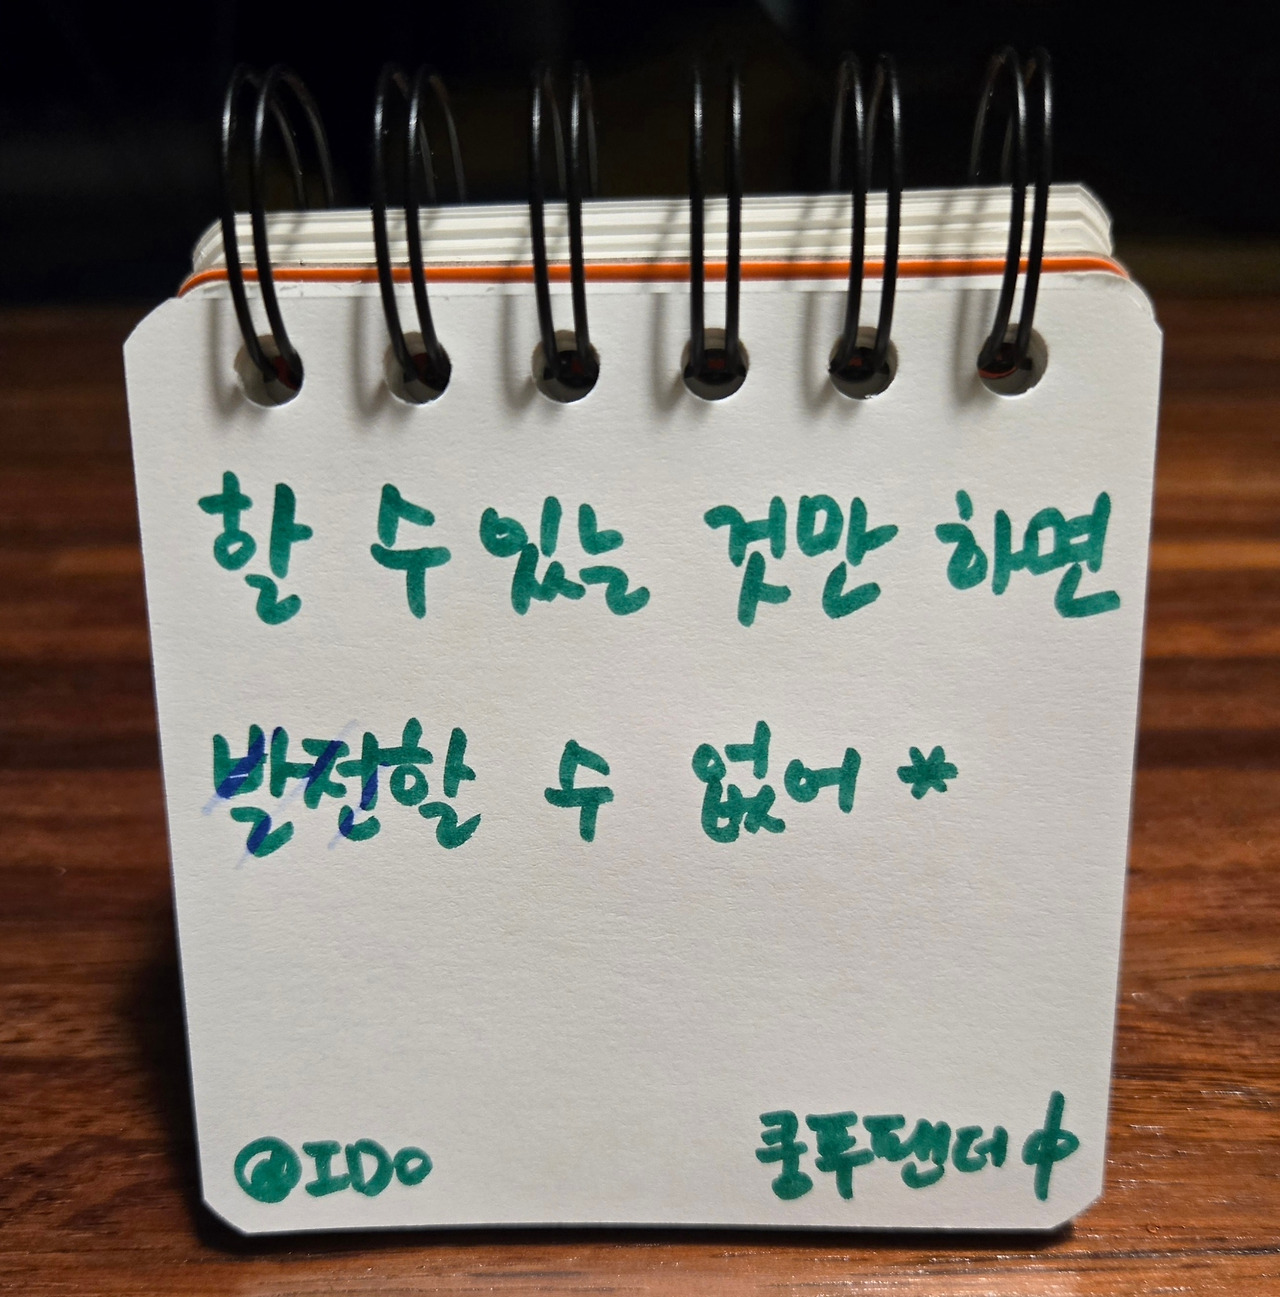 할 수 있는 것만 하면
발전할 수 없어 *
@IDo
쿵푸팬더 中